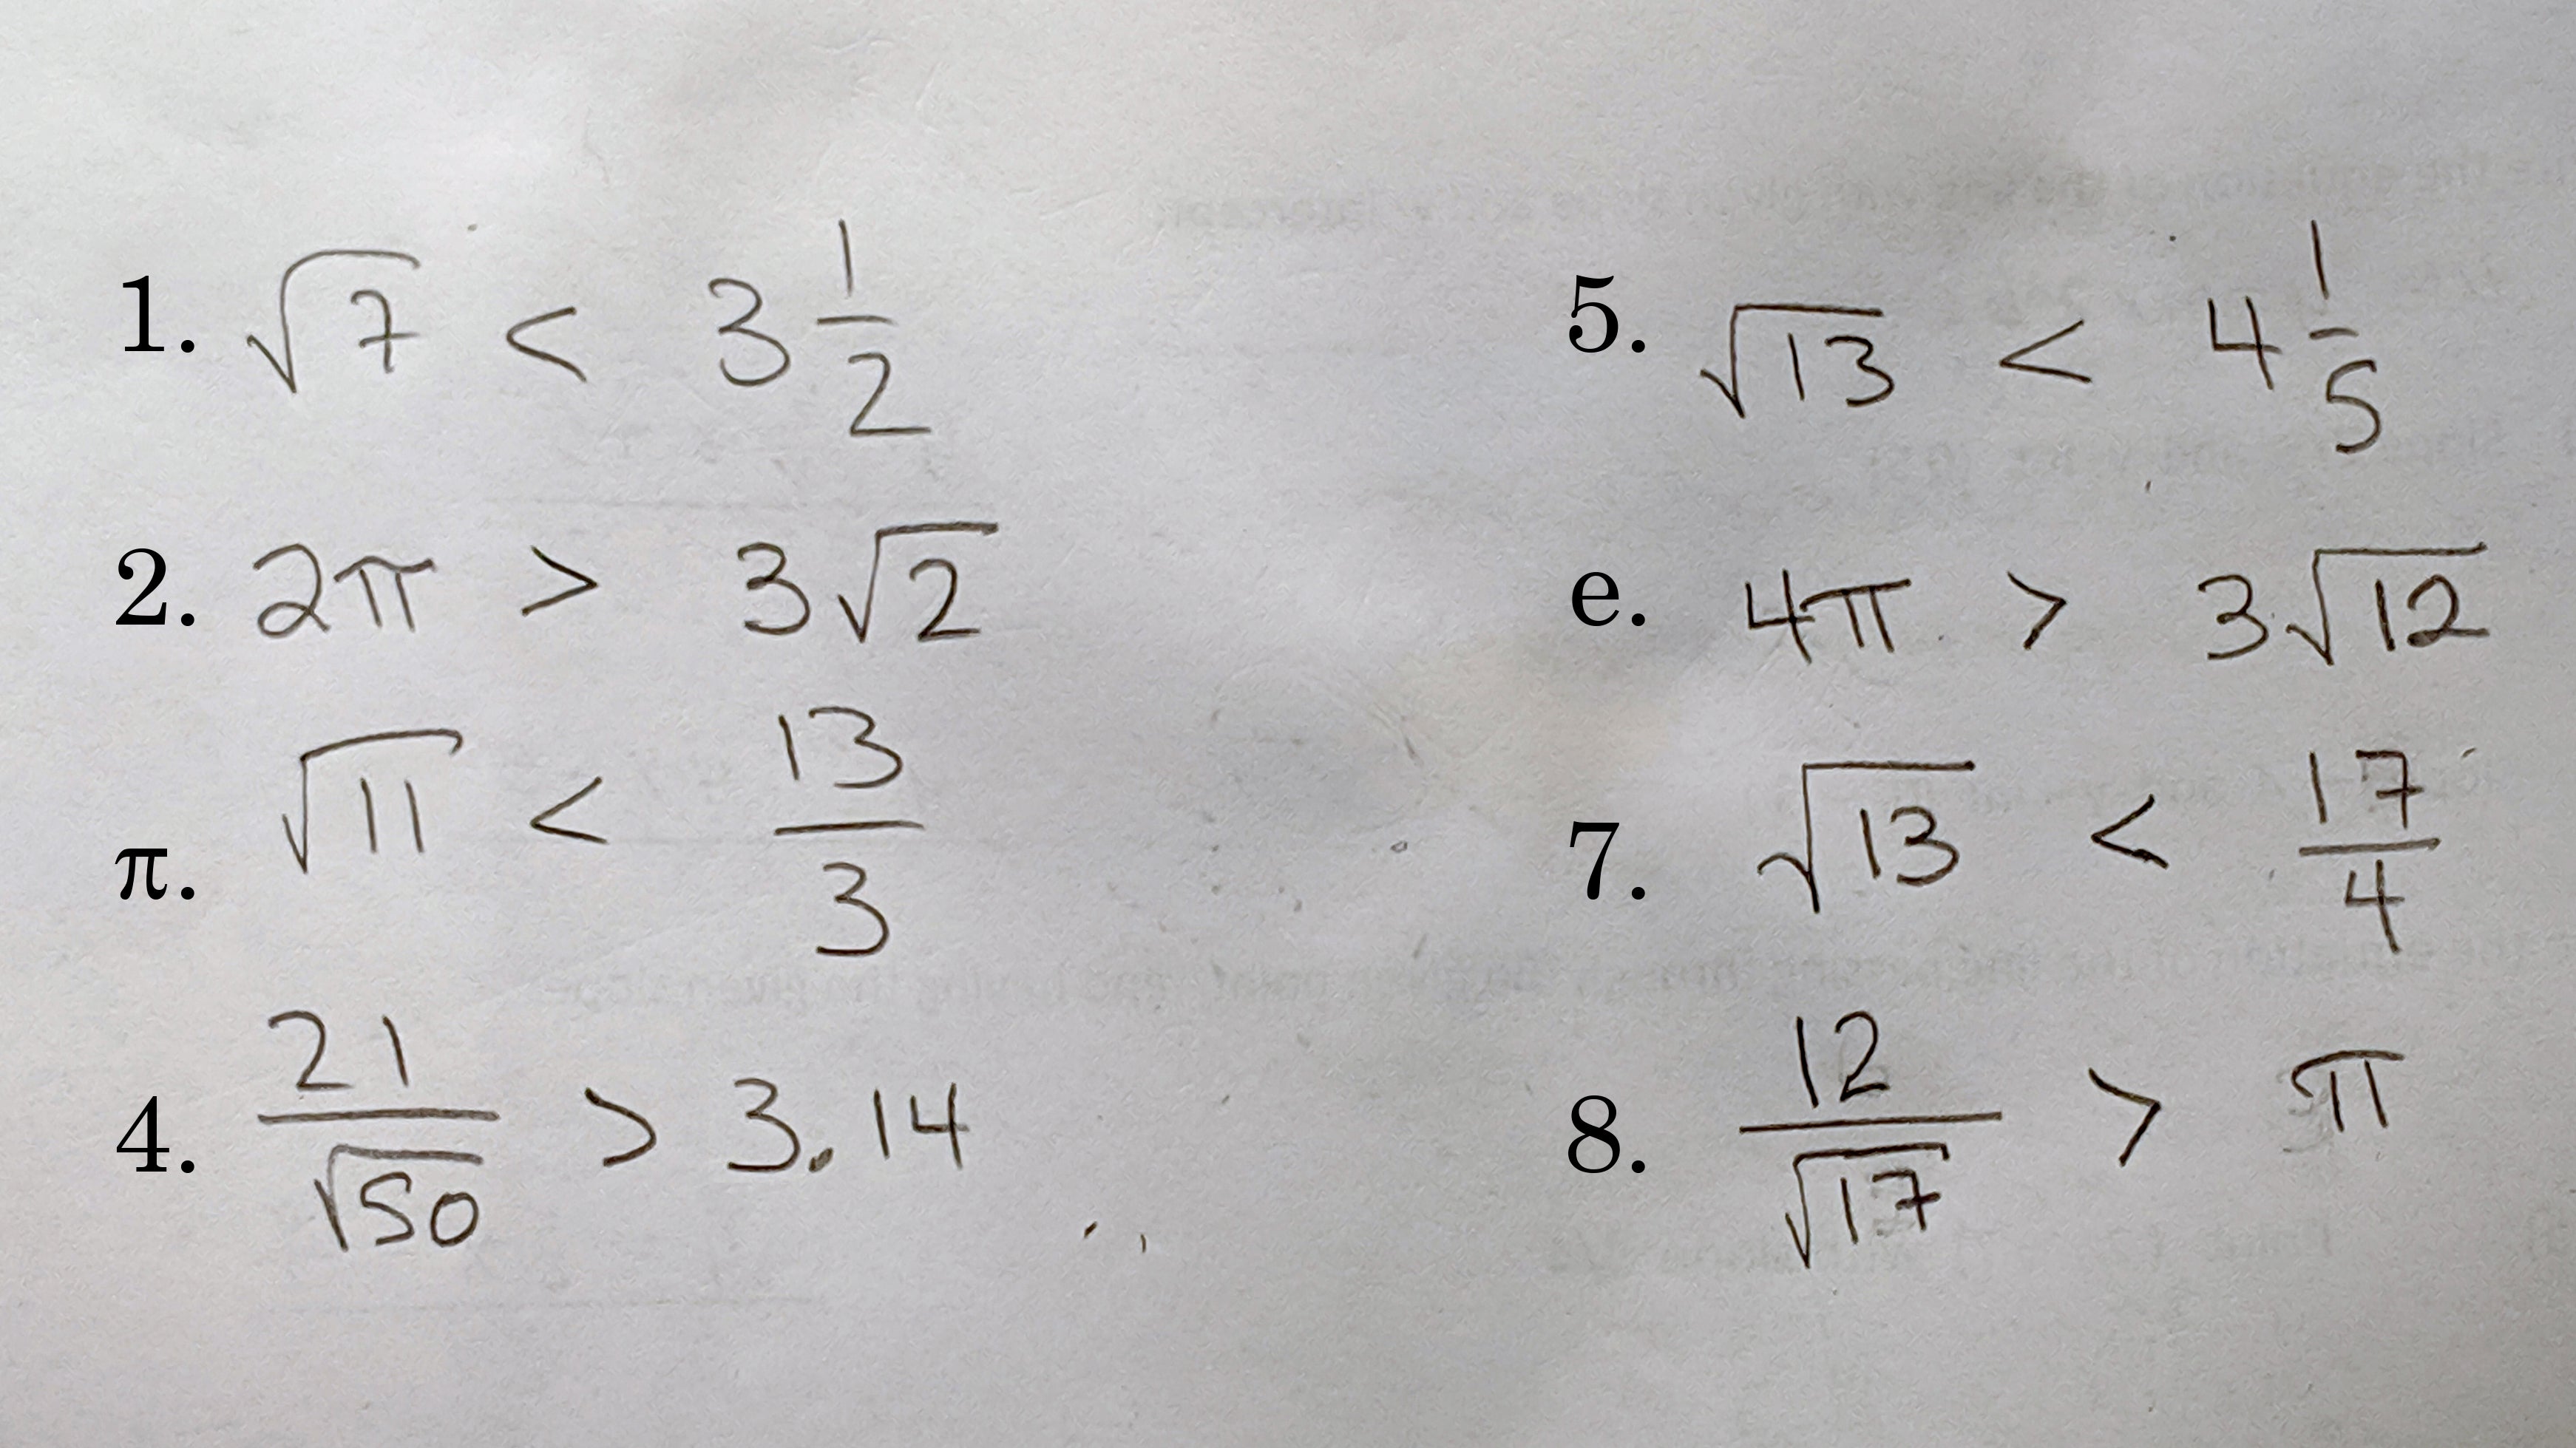 1. √7 < 3 1/2
2. 2π > 3√2
π. √11 < 13/3
4. 21/√50 > 3.14
5. √13 < 4 1/5
e. 4π > 3√12
7. √13 < 17/4
8. 12/√17 > π